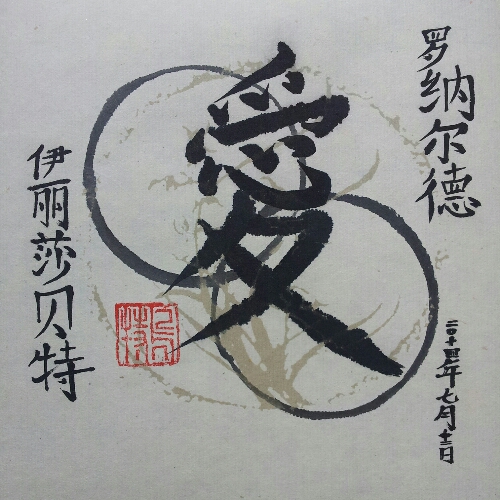 罗纳尔德
愛
伊丽莎贝特
年七月十二日